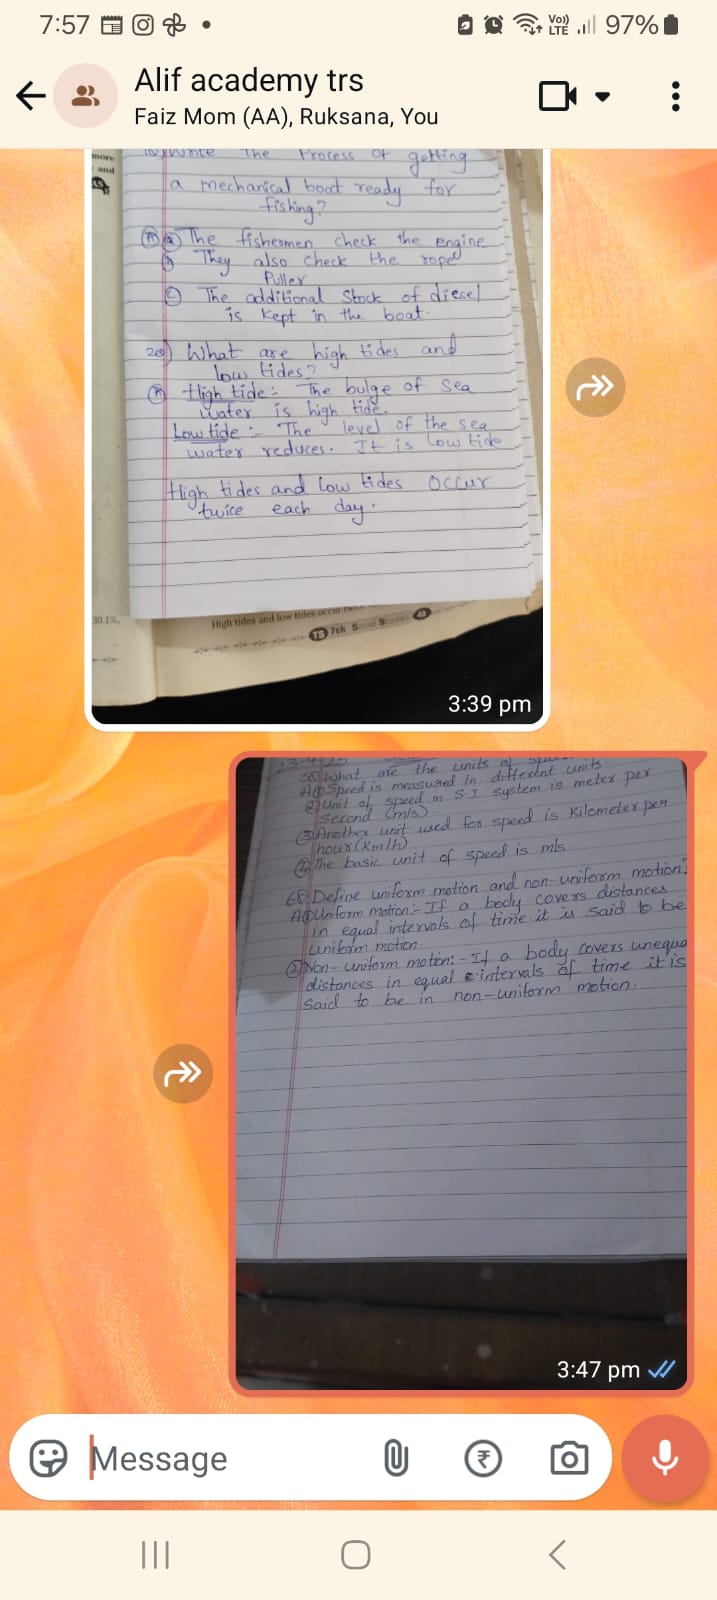 7:57
Vo))
LTE
97%
Alif academy trs
Faiz Mom (AA), Ruksana, You
more
and
Write the Process of getting
a mechanical boat ready for
fishing?
A) a The fishermen check the engine
b They also check the rope
Puller
c The additional Stock of diesel
is kept in the boat.
20) What are high tides and
low tides?
A High tide:- The bulge of sea
water is high tide.
Low tide:- The level of the sea
water reduces. It is Low tide
High tides and Low tides occur
twice each day.
30.1%,
High tides and low tides occur
TS 7th Social Studies 49
3:39 pm
58) What are the units of
A) 1 Speed is measured in different units.
2 Unit of speed in S I system is meter per
second (m/s).
3 Another unit used for speed is Kilometer per
hour (Km/h)
4 The basic unit of speed is m/s
68) Define uniform motion and non-uniform motion?
A) 1 Uniform motion:- If a body covers distances
in equal intervals of time it is said to be
uniform motion.
2 Non-uniform motion:- If a body covers unequa
distances in equal intervals of time it is
said to be in non-uniform motion.
3:47 pm
Message